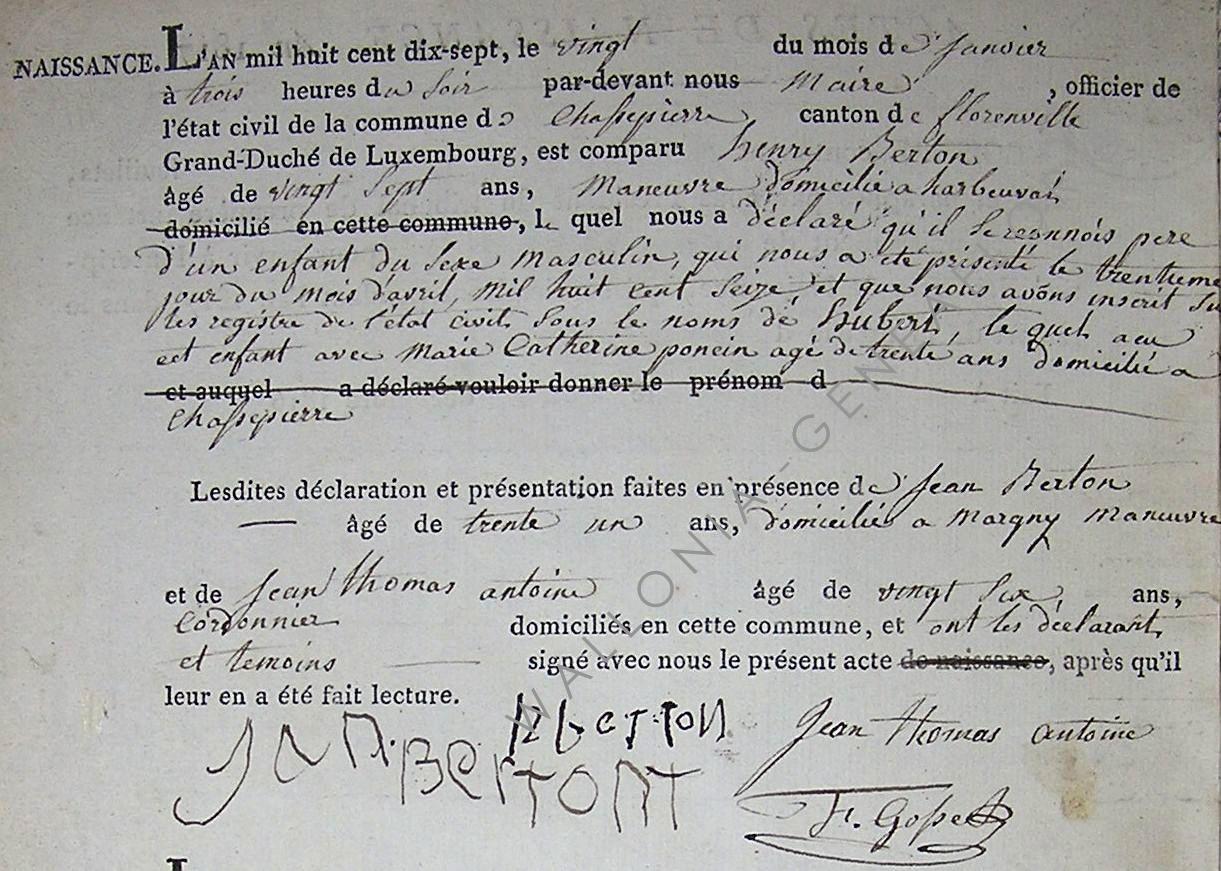 NAISSANCE. L'AN mil huit cent dix-sept, le vingt du mois de Janvier
à trois heures du Soir par-devant nous Maire, officier de
l'état civil de la commune de Chassepierre canton de florenville
Grand-Duché de Luxembourg, est comparu henry Berton
âgé de vingt Sept ans, Maneuvre domicilié a
domicilié en cette commune, le quel nous a déclaré qu'il Sereconnois pere
d'un enfant du Sexe Masculin, qui nous a été présenté le trentieme
jour du mois d'avril, mil huit cent Seize, et que nous avons inscrit Su
les registre de l'état civil Sous le noms de hubert, le quel a eu
cet enfant avec Marie Catherine poncin agé de trente ans domicilié a
et auquel a déclaré vouloir donner le prénom d
Chassepierre
Lesdites déclaration et présentation faites en présence de Jean Berton
âgé de trente un ans, domicilié a Margny Maneuvre
et de Jean thomas antoine âgé de vingt Six ans,
Cordonnier domiciliés en cette commune, et ont les déclarant
et temoins signé avec nous le présent acte de naissance, après qu'il
leur en a été fait lecture.
H berton Jean thomas antoine
JEAN BERTONT
WALLONIA-GENEA